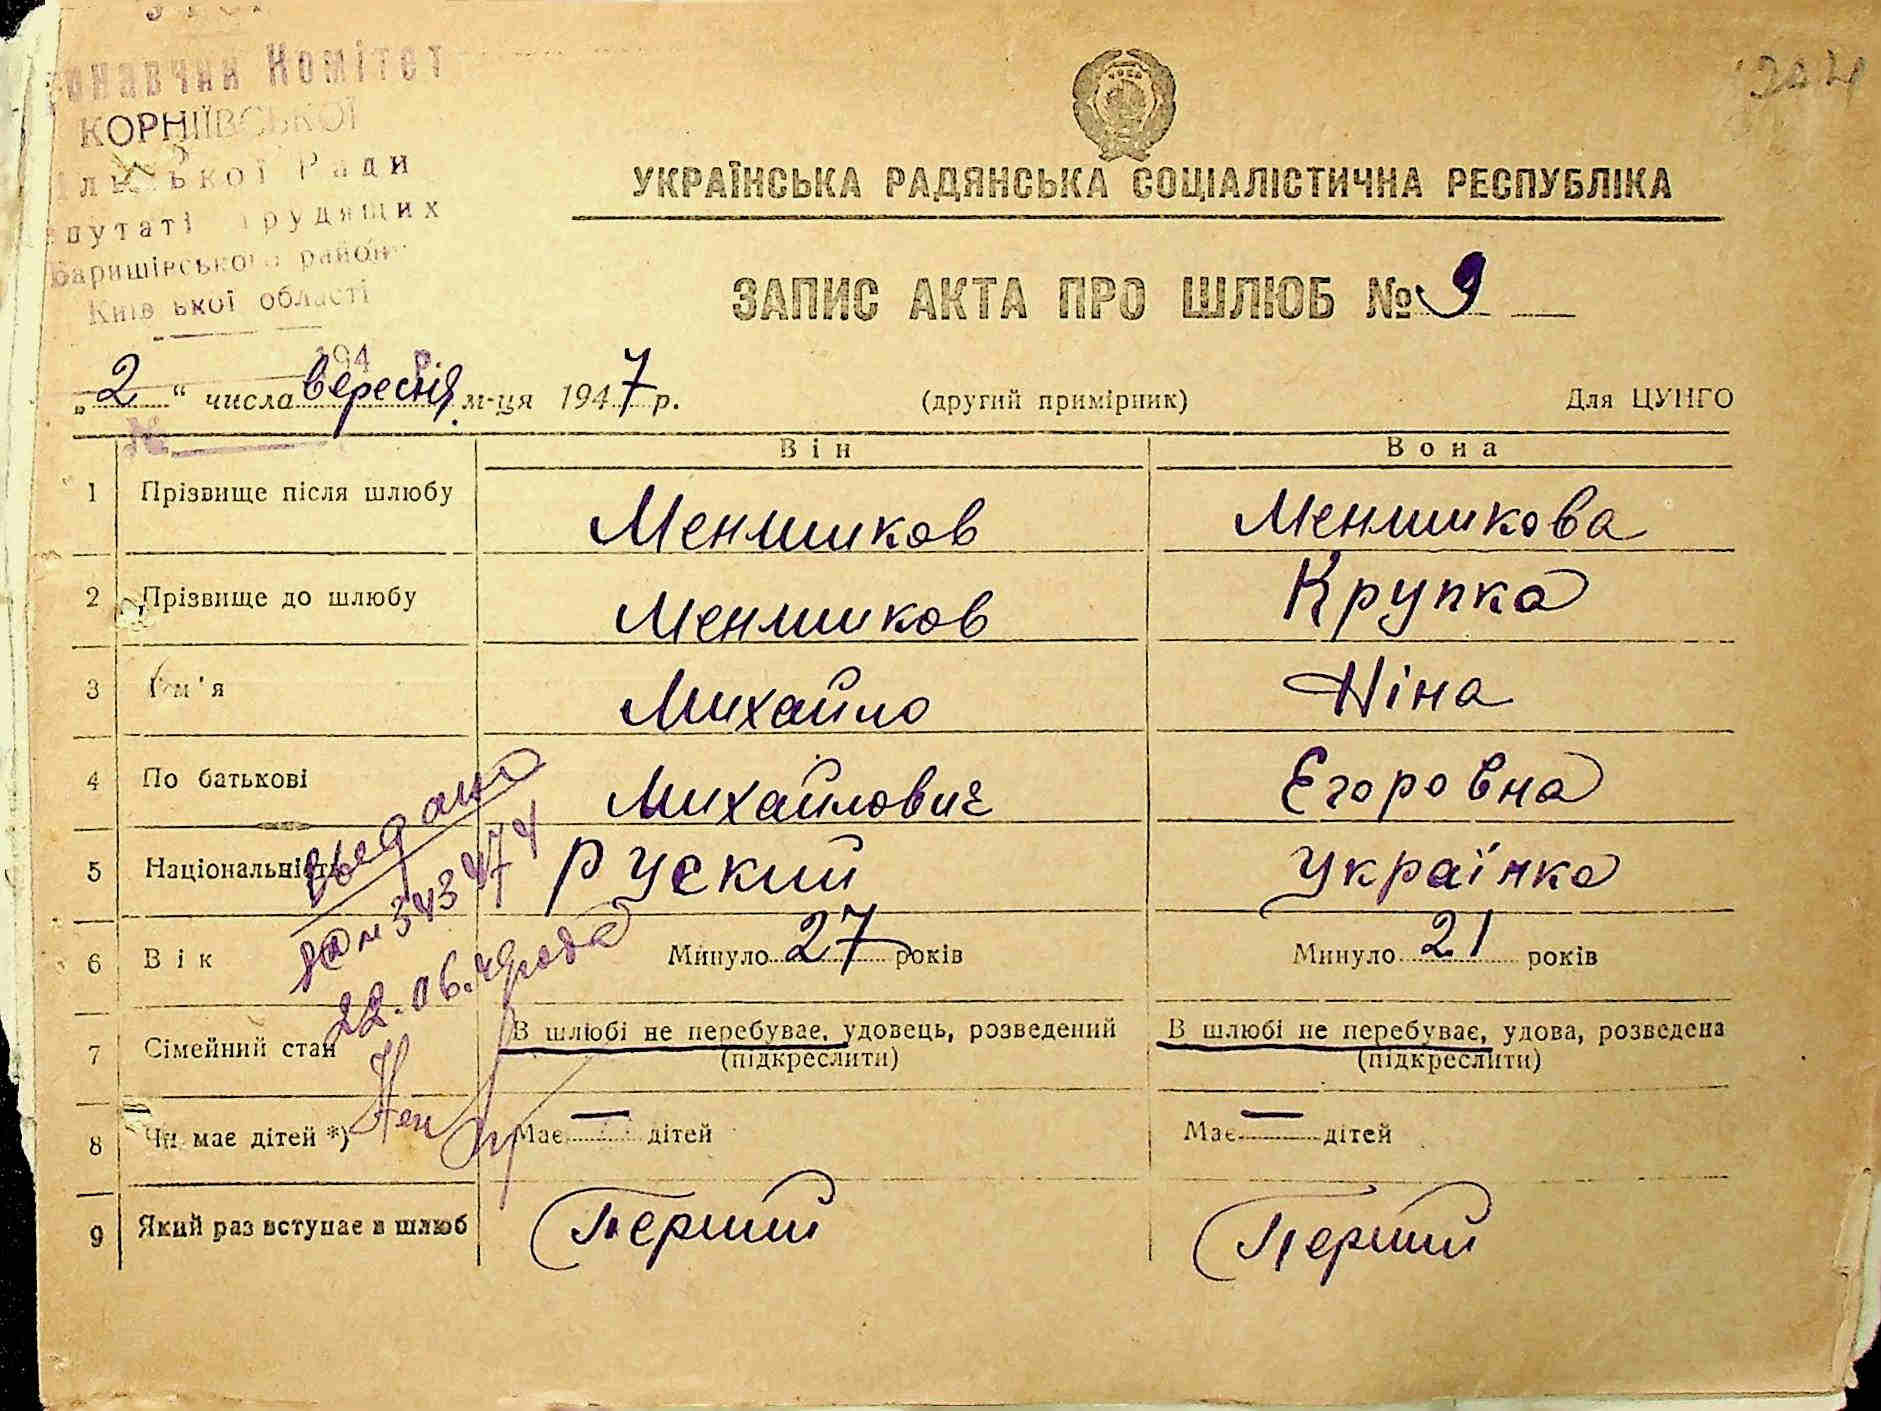 онавчий Комітет
КОРНІЇВСЬКОЇ
ільської Ради
епутаті трудящих
Баришівського району
Київської області
194 р.
№
УКРАЇНСЬКА РАДЯНСЬКА СОЦІАЛІСТИЧНА РЕСПУБЛІКА
ЗАПИС АКТА ПРО ШЛЮБ № 9
„2“ числа вересня м-ця 1947 р. (другий примірник) Для ЦУНГО
Він Вона
1 Прізвище після шлюбу Меншиков Меншикова
2 Прізвище до шлюбу Меншиков Крупка
3 Ім'я Михайло Ніна
4 По батькові Михайлович Егоровна
5 Національність Руский Українка
6 Вік Минуло 27 років Минуло 21 років
7 Сімейний стан В шлюбі не перебуває, удовець, розведений В шлюбі не перебуває, удова, розведена
(підкреслити) (підкреслити)
8 Чи має дітей *) Має — дітей Має — дітей
9 Який раз вступає в шлюб Перший Перший
22.06. года